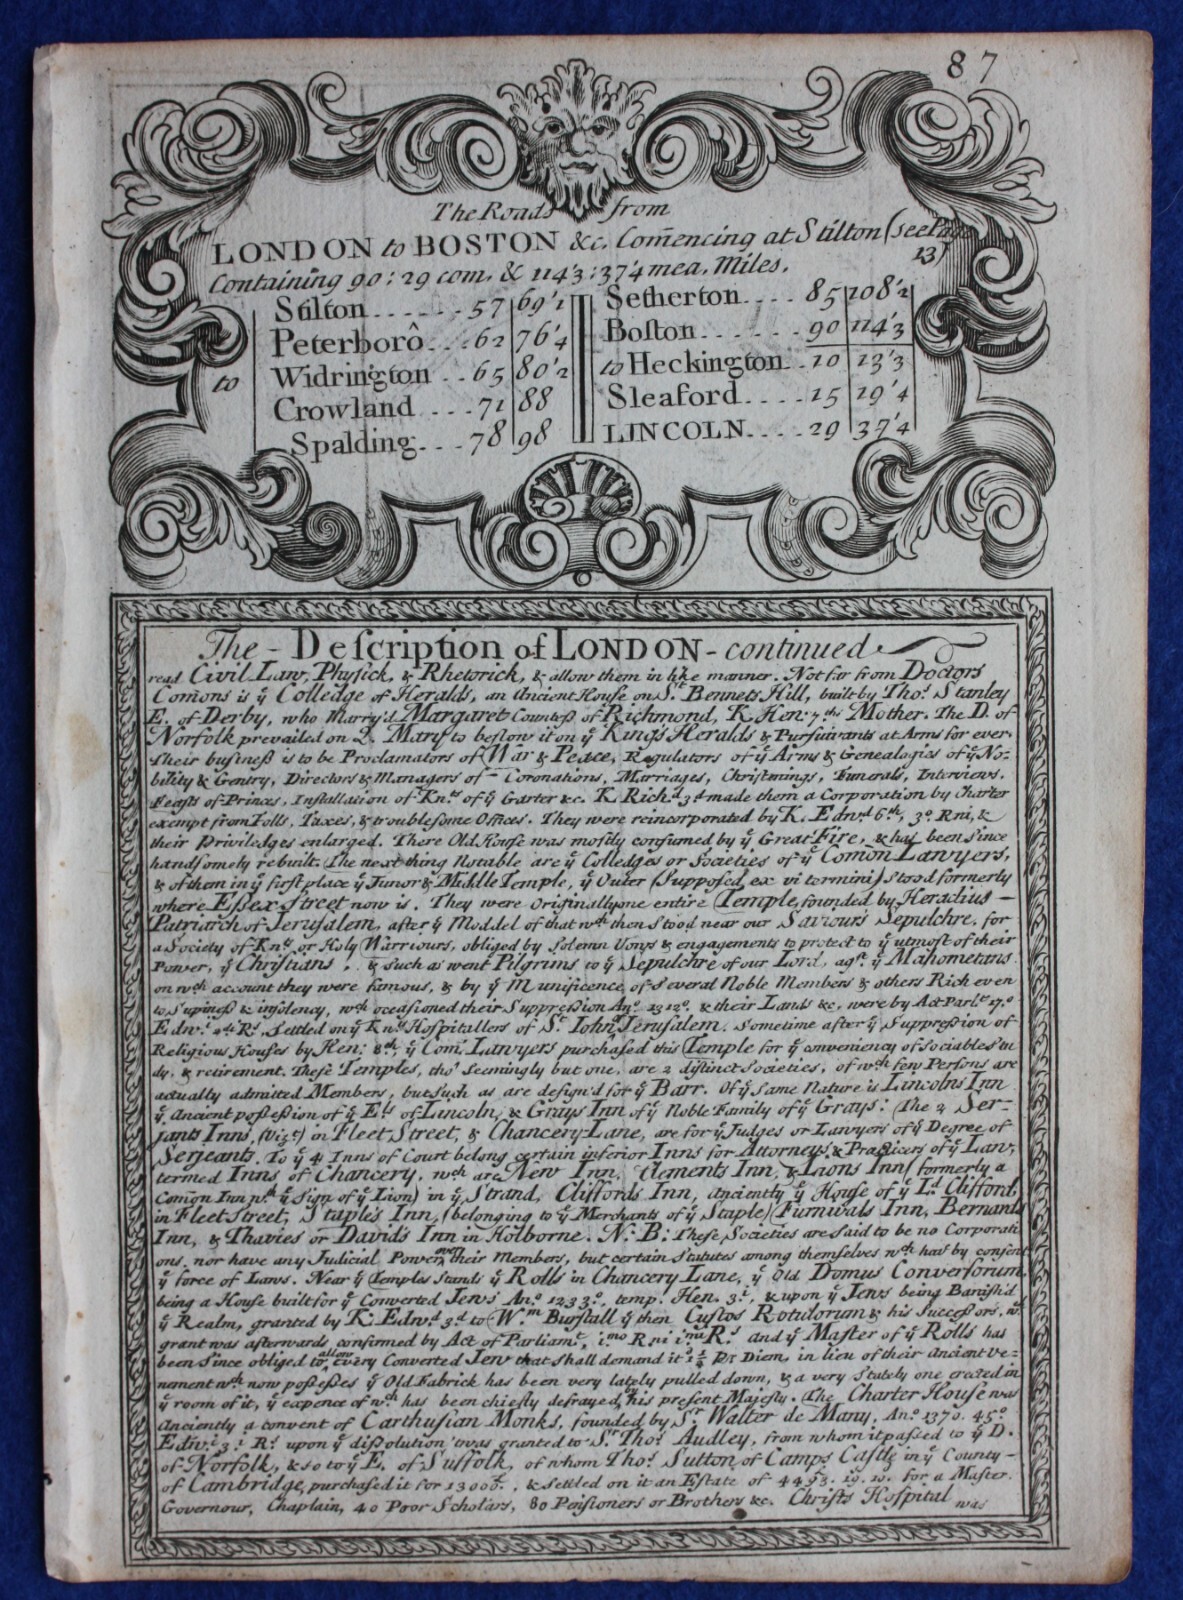 87
The Roads from
LONDON to BOSTON &c. Com̄encing at Stilton (see Page 13)
Containing 90 : 29 com. & 114'3 : 37'4 mea. Miles.
to
Stilton ...... 57 69'1
Peterborô ... 62 76'4
Widrington .. 65 80'2
Crowland .... 71 88
Spalding ... 78 98
Setherton .... 85 108'2
Boston ....... 90 114'3
to Heckington .. 10 13'3
Sleaford ..... 15 19'4
LINCOLN .... 29 37'4
The - Deſcription of LONDON - continued
read Civil Law, Phyſick, & Rhetorick, & allow them in like manner. Not far from Doctors
Com̄ons is yͤ Colledge of Heralds, an Ancient Houſe on Sᵗ Bennets Hill, built by Thoˢ Stanley
E. of Derby, who Marry'd Margaret Counteſs of Richmond, K. Hen: 7ᵗʰˢ Mother. The D. of
Norfolk prevailed on Q. Mary to beſtow it on yͤ Kings Heralds & Purſuivants at Arms for ever.
Their buſineſs is to be Proclamators of War & Peace, Regulators of yͤ Arms & Genealogies of yͤ No-
bility & Gentry, Directors & Managers of Coronations, Marriages, Chriſtnings, Funerals, Interviews,
Feaſts of Princes, Inſtallation of Knᵗˢ of yͤ Garter &c. K. Richᵈ 3ᵈ made them a Corporation by Charter
exempt from Tolls, Taxes, & troubleſome Offices. They were reincorporated by K. Edwᵈ 6ᵗʰ, 3º Rni, &
their Priviledges enlarged. There Old Houſe was moſtly conſumed by yͤ Great Fire, & has been Since
handſomely rebuilt. The next thing Notable are yͤ Colledges or Societies of yͤ Com̄on Lawyers,
& of them in yͤ firſt place yͤ Junor & Middle Temple, yͤ Outer (Suppoſed ex vi termini) Stood formerly
where Eſſex Street now is. They were Originally one entire Temple, founded by Heraclius
Patriarch of Jeruſalem, after yͤ Moddel of that wᶜʰ then Stood near our Saviours Sepulchre, for
a Society of Knᵗˢ or Holy Warriours, obliged by Solemn Vows & engagements to protect to yͤ utmoſt of their
Power, yͤ Chriſtians, & Such as went Pilgrims to yͤ Sepulchre of our Lord, agˢᵗ yͤ Mahometans
on wᶜʰ account they were famous, & by yͤ Munificence of Several Noble Members & others Rich even
to Supineſs & inſolency, wᶜʰ occaſioned their Suppreſſion Anº 1312º. & their Lands &c. were by Act Parlᵗ 17º
Edwᵈ 2ᵈ Rˢ. Settled on yͤ Knᵗˢ Hoſpitallers of Sᵗ John of Jeruſalem. Sometime after yͤ Suppreſſion of
Religious Houſes by Hen: 8ᵗʰ, yͤ Com̄. Lawyers purchaſed this Temple for yͤ conveniency of Sociable Stu
dy, & retirement. Theſe Temples, tho' Seemingly but one, are 2 diſtinct Societies, of wᶜʰ few Perſons are
actually admitted Members, but Such as are deſign'd for yͤ Barr. Of yͤ Same Nature is Lincolns Inn
yͤ Ancient poſſeſſion of yͤ Eˡˢ of Lincoln, & Grays Inn of yͤ Noble Family of yͤ Grays: The 2 Ser-
jants Inns, (Vizᵗ) in Fleet Street, & Chancery Lane, are for yͤ Judges or Lawyers of yͤ Degree of
Serjeants. To yͤ 4 Inns of Court belong certain inferior Inns for Attorneys & Practicers of yͤ Law,
termed Inns of Chancery, wᶜʰ are New Inn, Clements Inn, & Lions Inn (formerly a
Com̄on Inn wᵗʰ yͤ Sign of yͤ Lion) in yͤ Strand, Cliffords Inn, Anciently yͤ Houſe of yͤ Lᵈ Clifford,
in Fleet Street, Staples Inn, (belonging to yͤ Merchants of yͤ Staple) Furnivals Inn, Bernards
Inn, & Thavies or Davids Inn in Holborne. N: B: Theſe Societies are Said to be no Corporati
ons, nor have any Judicial Power over their Members, but certain Statutes among themſelves wᶜʰ have by conſent
yͤ force of Laws. Near yͤ Temples Stands yͤ Rolls in Chancery Lane, yͤ Old Domus Converſorum,
being a Houſe built for yͤ Converted Jews Anº 1233º. temp. Hen. 3ᵈ, & upon yͤ Jews being Baniſh'd
yͤ Realm, granted by K. Edwᵈ 3ᵈ to Wᵐ Burſtall yͤ then Cuſtos Rotulorum & his Succeſſors, wᶜʰ
grant was afterwards confirmed by Act of Parliamᵗ, 1ᵐᵒ Rni Rˢ and yͤ Maſter of yͤ Rolls has
been Since obliged to allow every Converted Jew that Shall demand it 1½ᵈ Pʳ Diem, in lieu of their Ancient Te-
nement wᶜʰ now poſſeſſes yͤ Old Fabrick has been very lately pulled down, & a very Stately one erected in
yͤ room of it, yͤ expence of wᶜʰ has been chiefly defrayed by his preſent Majeſty. The Charter Houſe was
Anciently a convent of Carthuſian Monks, founded by Sʳ Walter de Many, Anº 1370. 45º
Edwᵈ 3ᵈ Rˢ upon yͤ diſſolution 'twas granted to Sʳ Thoˢ Audley, from whom it paſſed to yͤ D.
of Norfolk, & so to yͤ E. of Suffolk, of whom Thoˢ Sutton of Camps Caſtle in yͤ County
of Cambridge, purchaſed it for 13000ˡ. & Settled on it an Eſtate of 4493. 19. 10. for a Maſter,
Governour, Chaplain, 40 Poor Scholars, 80 Penſioners or Brothers &c. Chriſts Hoſpital was